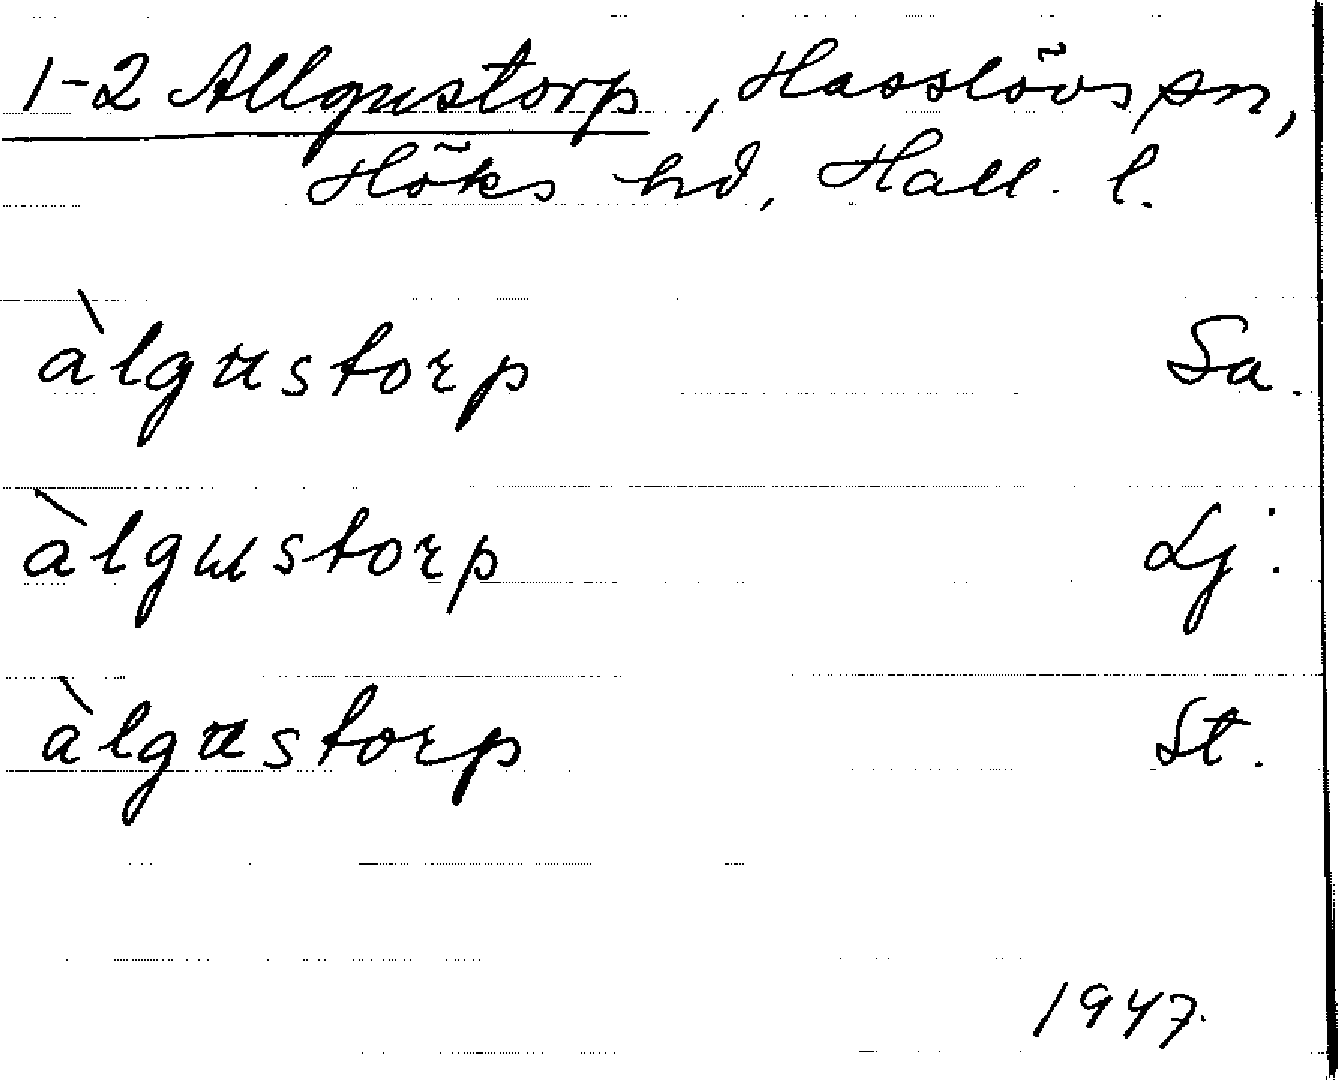 1-2 Allgustorp, Hasslövs sn,
Höks hd, Hall. l.
àlgustorp Sa.
àlgustorp Lj.
àlgustorp St.
1947.